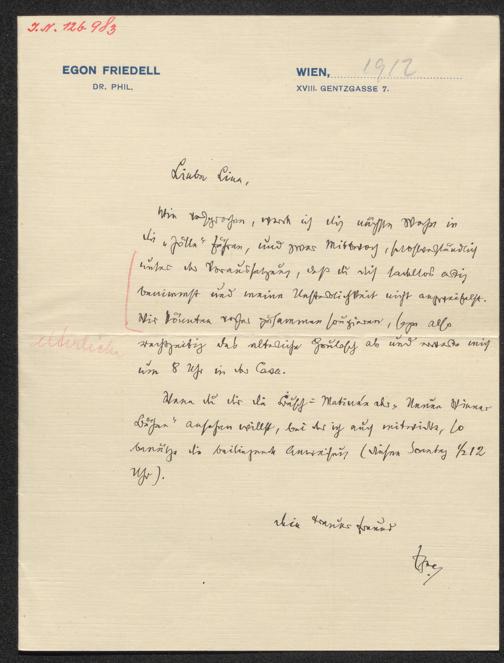 I.N. 126983
EGON FRIEDELL
DR. PHIL.
WIEN, 1912
XVIII. GENTZGASSE 7.
Liebe Lina,
Wie versprochen, werde ich dich nächste Woche in
die „Hölle“ führen, und zwar Mittwoch, selbstverständlich
unter der Voraussetzung, daß du dich tadellos artig
benimmst und meine Unsterblichkeit nicht anzweifelst.
Wir könnten vorher zusammen soupieren, sage also
rechtzeitig das elterliche Gulasch ab und erwarte mich
um 8 Uhr in der Casa.
elterliche
Wenn du dir die Busch-Matinée der „Neuen Wiener
Bühne“ ansehen willst, bei der ich auch mitwirke, so
benütze die beiliegende Anweisung (diesen Sonntag 1/2 12
Uhr).
dein treuer Freund